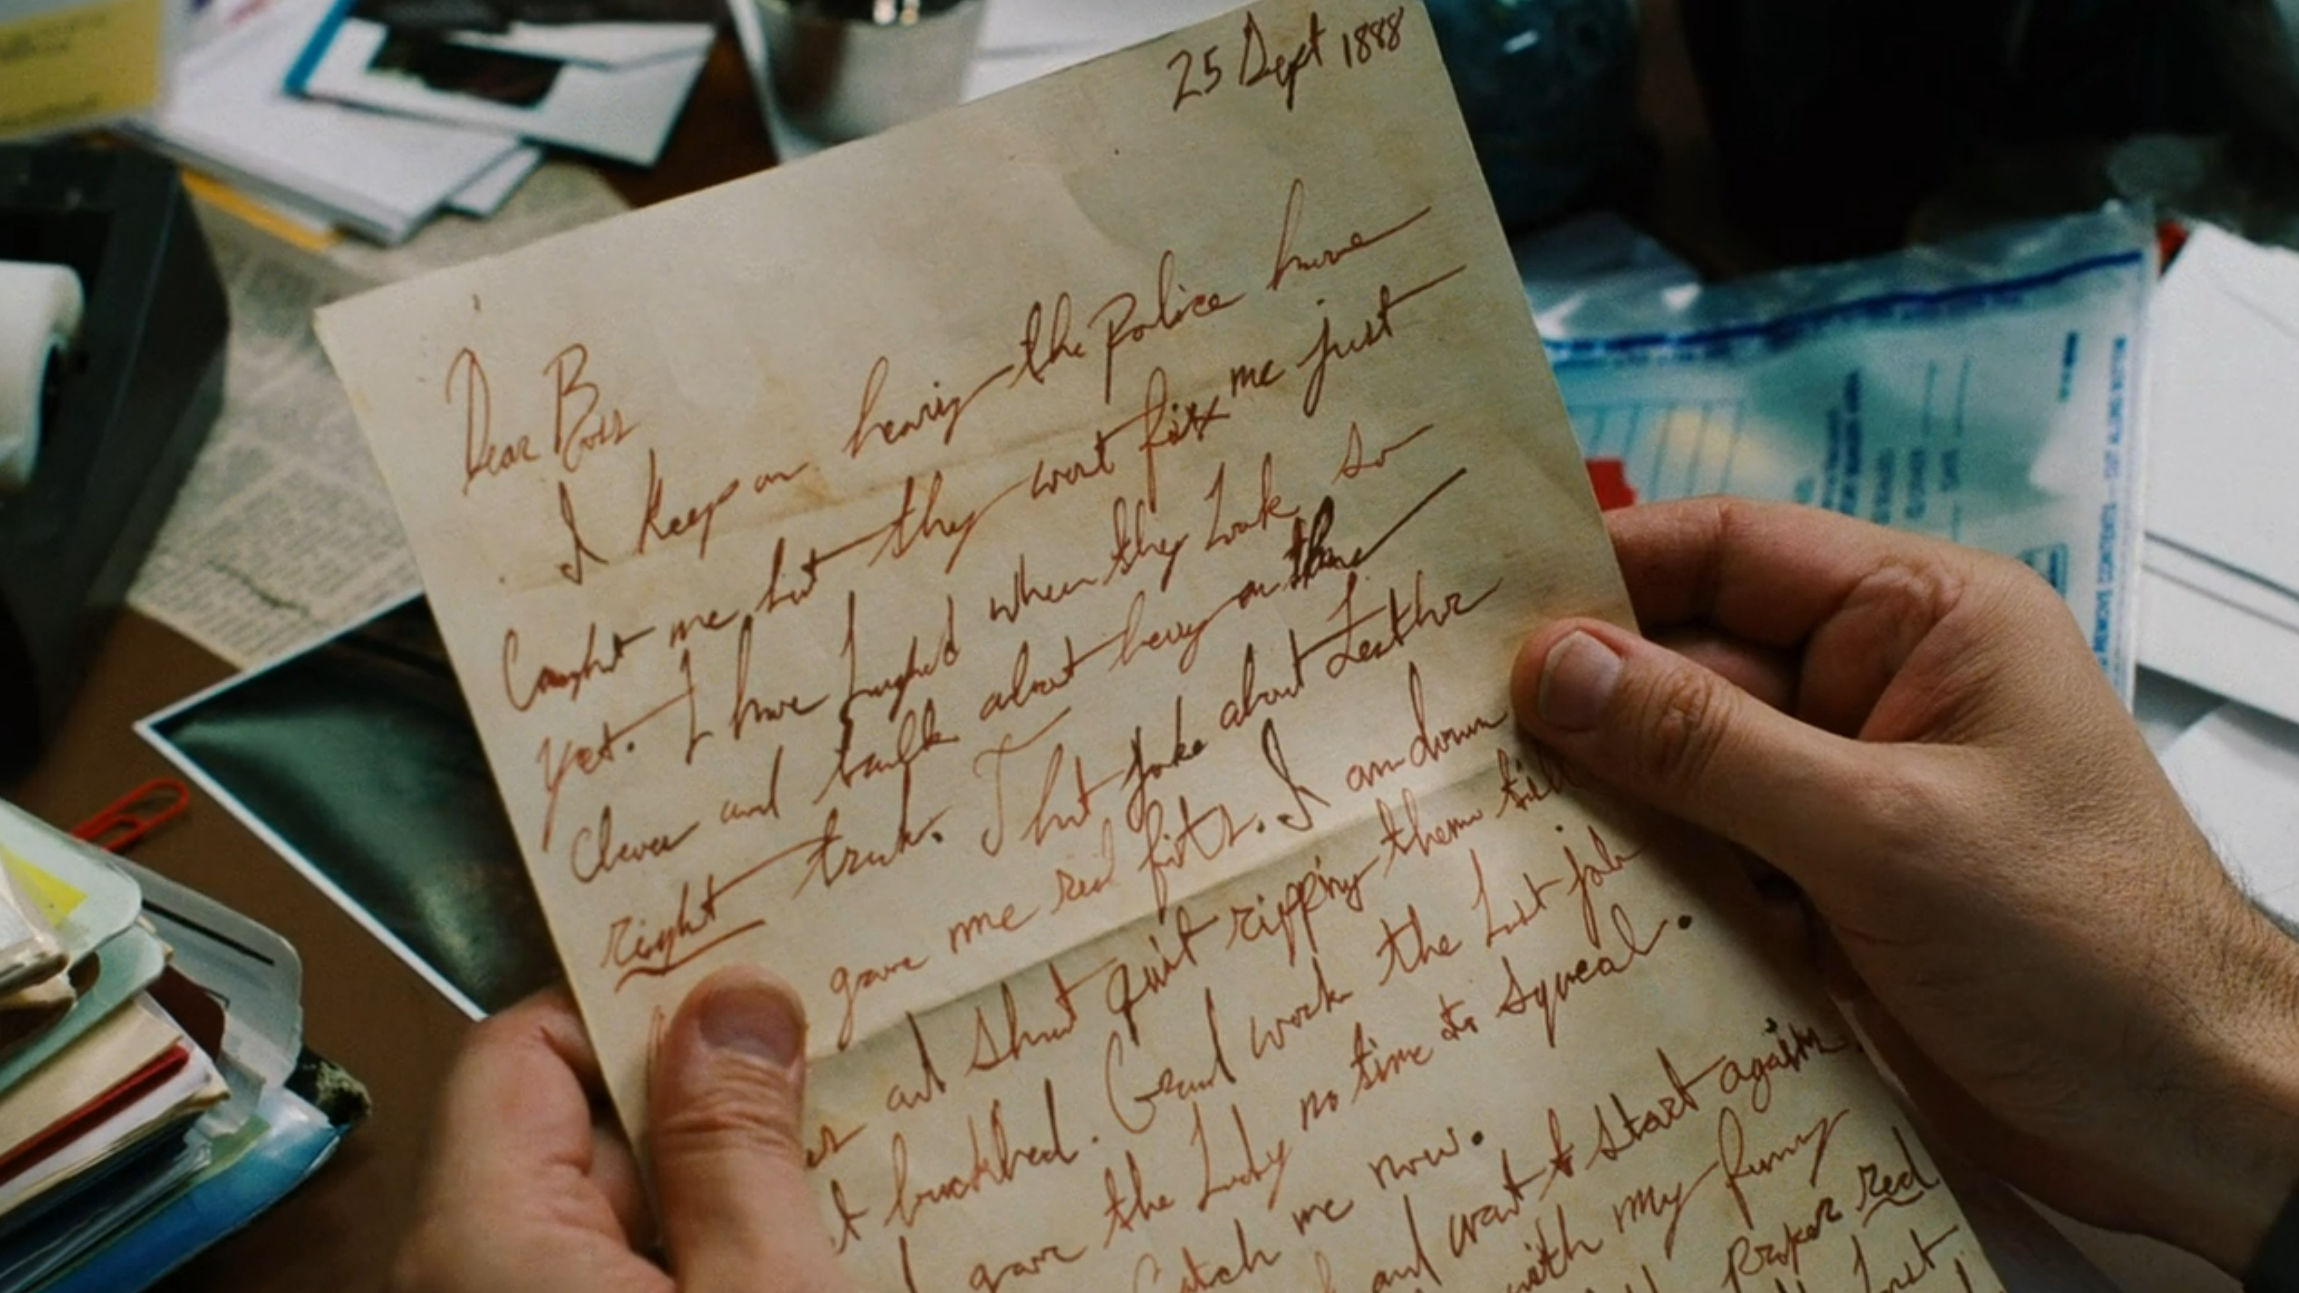 25 Sept 1888
Dear Boss
I keep on hearing the police have
Caught me but they wont fix me just
yet. I have laughed when they look so
Clever and talk about being on the
right track. That joke about Leather
gave me real fits. I am down
and shant quit ripping them till
buckled. Grand work the last job
I gave the Lady no time to squeal.
Catch me now.
and want to start again.
with my funny
Proper red
last